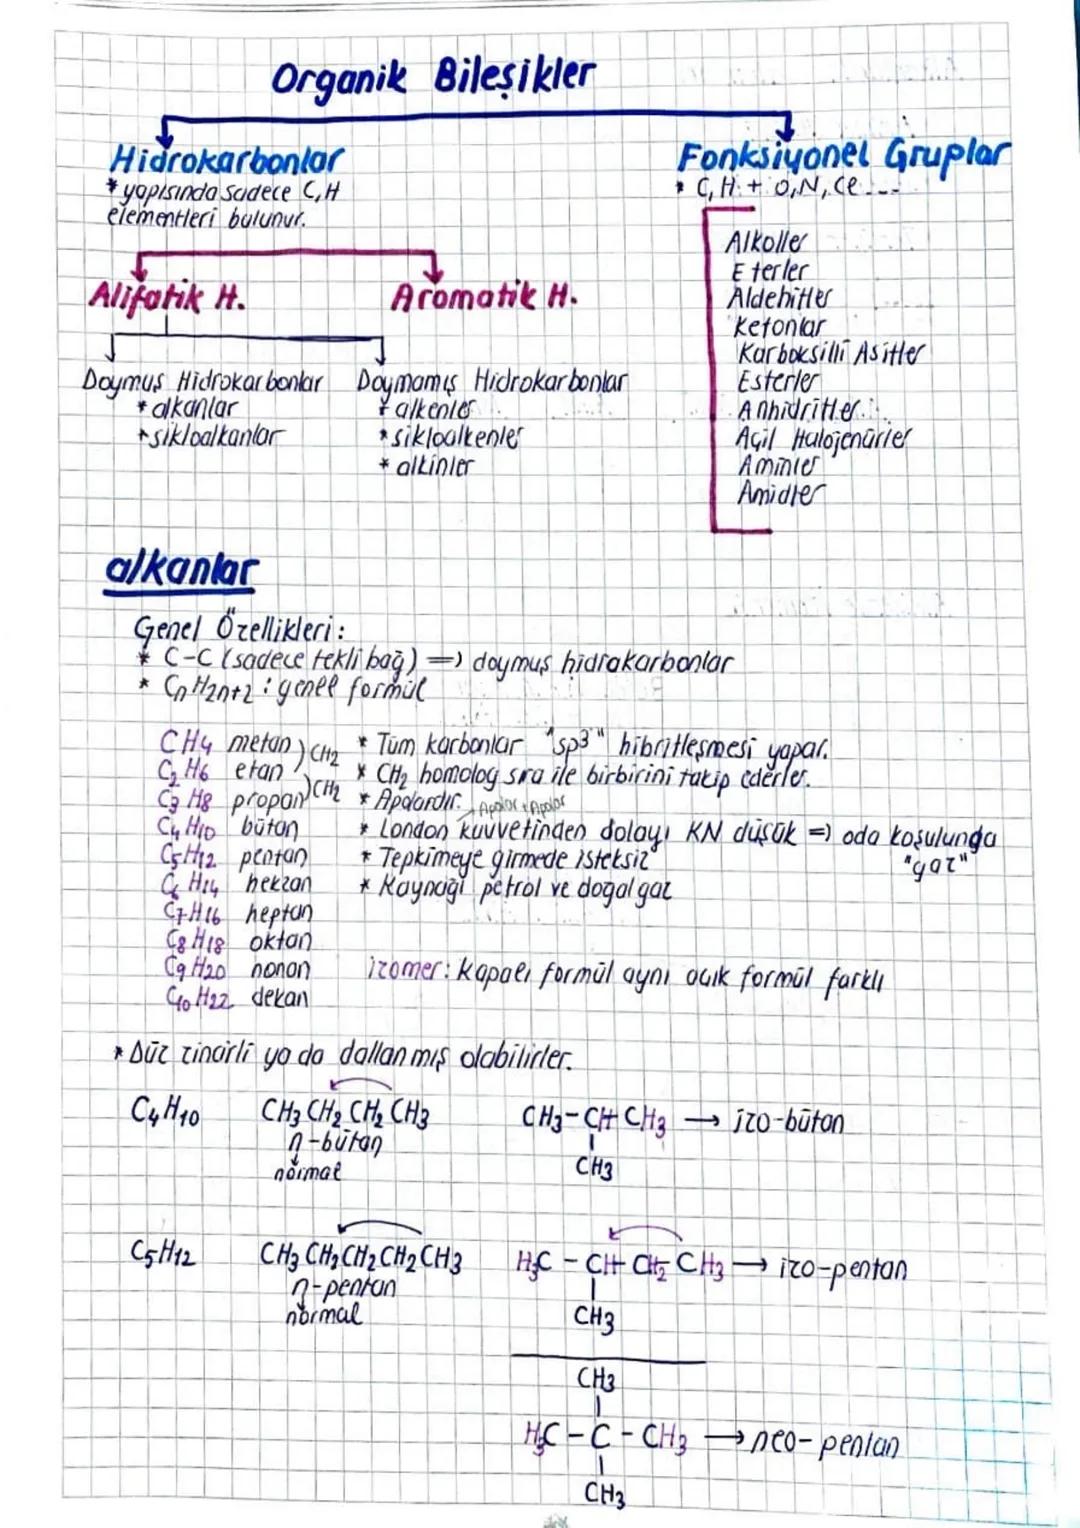 Organik Bileşikler
Hidrokarbonlar
* yapısında sadece C, H
elementleri bulunur.
Fonksiyonel Gruplar
* C, H + O, N, Cl ----
Alkoller
Eterler
Aldehitler
Ketonlar
Karboksilli Asitler
Esterler
Anhidritler
Açil Halojenürler
Aminler
Amidler
Alifatik H.
Aromatik H.
Doymuş Hidrokarbonlar
* alkanlar
* sikloalkanlar
Doymamış Hidrokarbonlar
* alkenler
* sikloalkenler
* alkinler
alkanlar
Genel Özellikleri:
* C-C (sadece tekli bağ) => doymuş hidrakarbonlar
* CnH2n+2 : genel formül
CH4 metan
C2H6 etan
C3H8 propan
C4H10 bütan
C5H12 pentan
C6H14 hekzan
C7H16 heptan
C8H18 oktan
C9H20 nonan
C10H22 dekan
CH2
CH2
* Tüm karbonlar "sp3" hibritleşmesi yapar.
* CH2 homolog sıra ile birbirini takip ederler.
* Apolardır. Apolar + Apolar
* London kuvvetinden dolayı KN düşük => oda koşulunda
"gaz"
* Tepkimeye girmede isteksiz
* Kaynağı petrol ve doğalgaz
izomer: kapalı formül aynı açık formül farklı
* Düz zincirli ya da dallanmış olabilirler.
C4H10 CH3 CH2 CH2 CH3 CH3-CH CH3 → izo-bütan
n-bütan CH3
normal
C5H12 CH3 CH2 CH2 CH2 CH3 H3C - CH CH2 CH3 → izo-pentan
n-pentan CH3
normal
CH3
H3C - C - CH3 → neo-pentan
CH3